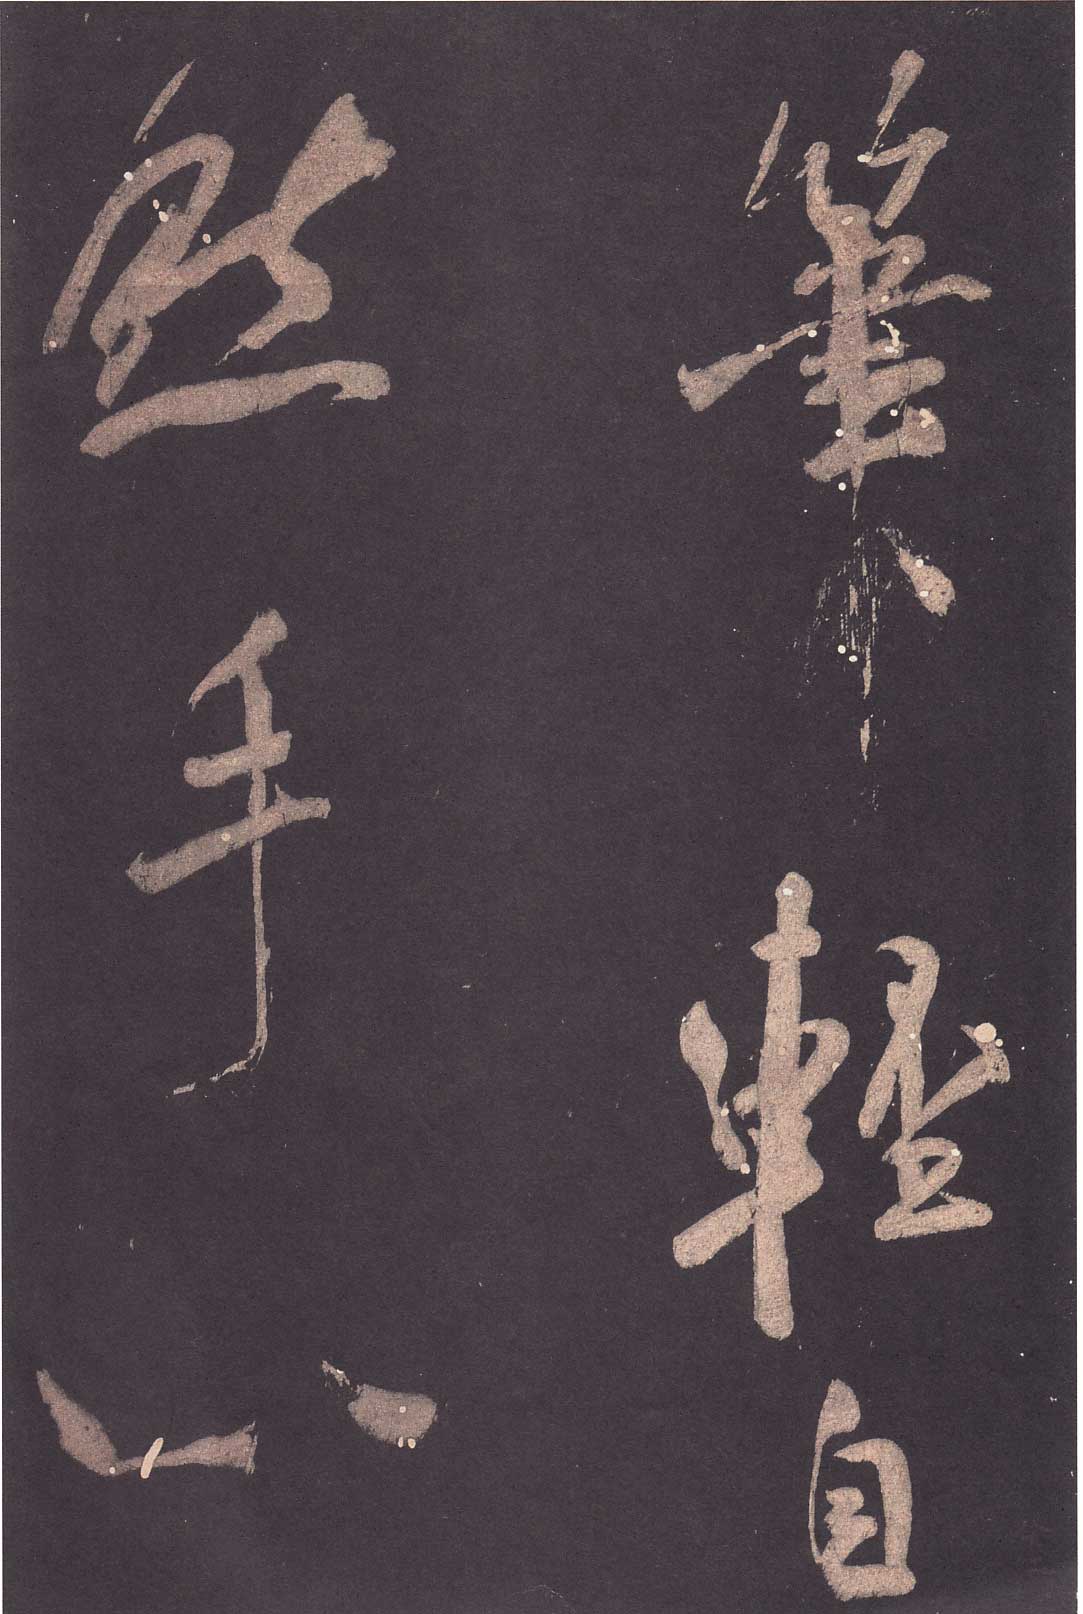 筆輕自
然手心